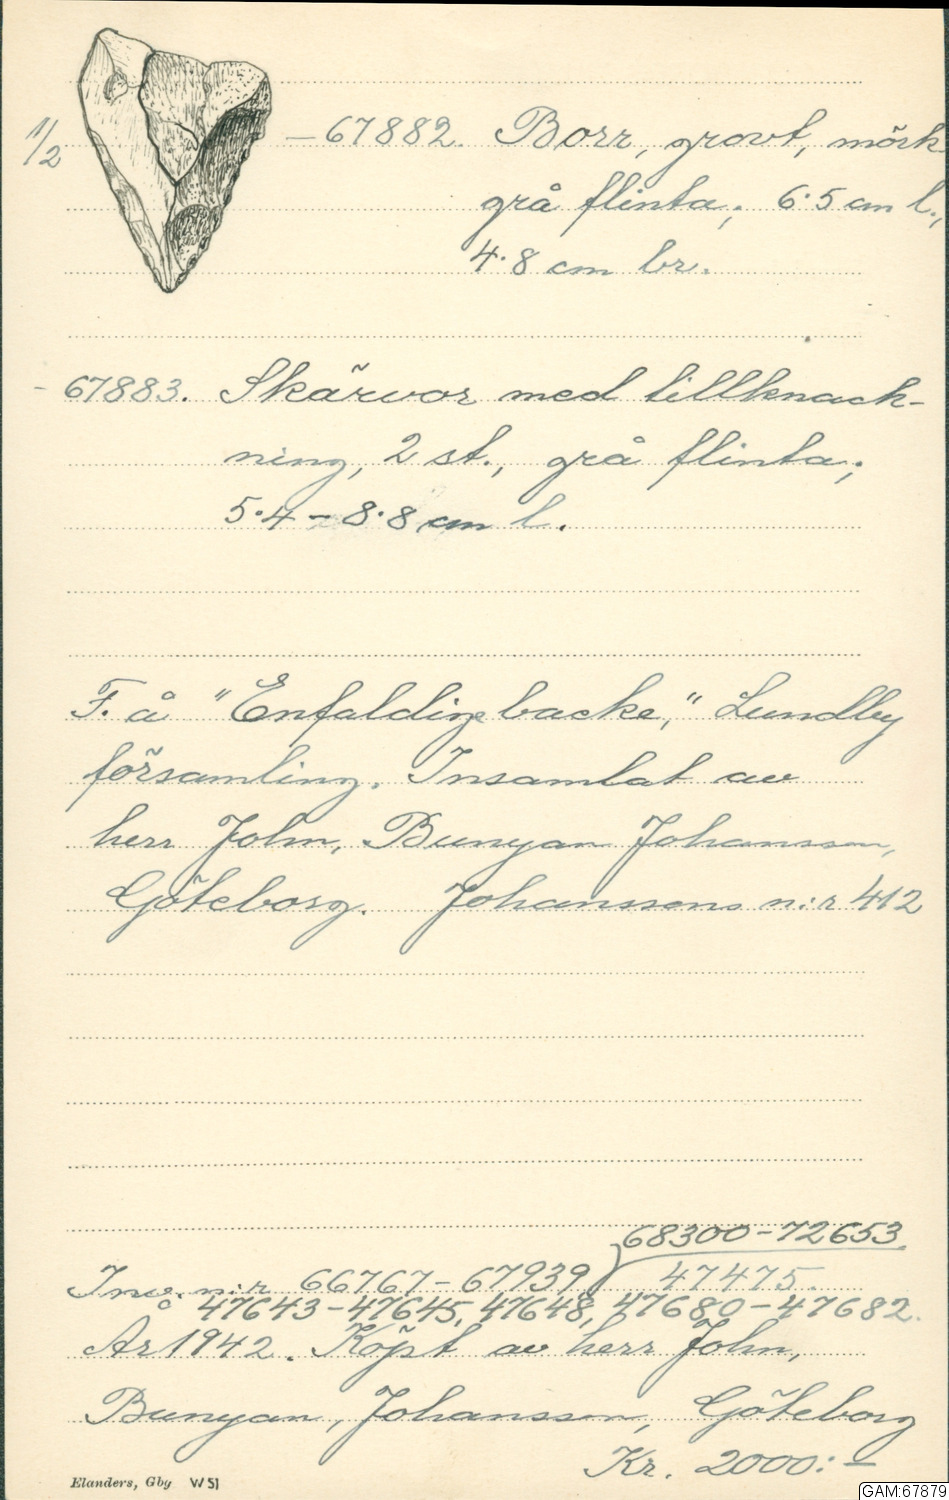 1/2
—67882. Borr, grovt, mörk-
grå flinta; 6·5 cm l.,
4·8 cm br.
- 67883. Skärvor med tillknack-
ning, 2 st., grå flinta;
5·4 – 8·8 cm l.
F. å "Enfaldingbacke," Lundby
församling. Insamlat av
herr John, Bunyan Johansson,
Göteborg. Johanssons n:r 412
68300-72653
Inv. n:r 66767-67939 47475.
47643-47645, 47648, 47680-47682.
År 1942. Köpt av herr John,
Bunyan, Johansson, Göteborg
Kr. 2000:—
Elanders, Gby W 51
GAM:67879